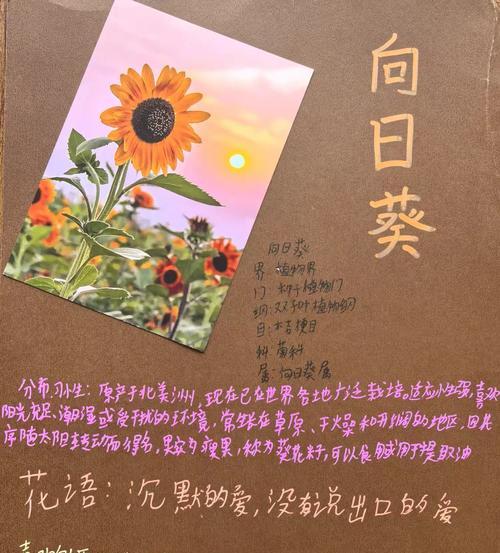 向日葵
向日葵
界:植物界
门:种子植物门
纲:双子叶植物纲
目:桔梗目
科:菊科
属:向日葵属
分布习性:原产于北美洲,现在已在世界各地广泛栽培。适应性强,喜欢
阳光充足、潮湿或受干扰的环境,常生长在草原、干燥和开阔的地区,因其花
序随太阳转动而得名,果实为瘦果,称为葵花籽,可以食用或用于提取油
花语:沉默的爱,没有说出口的爱